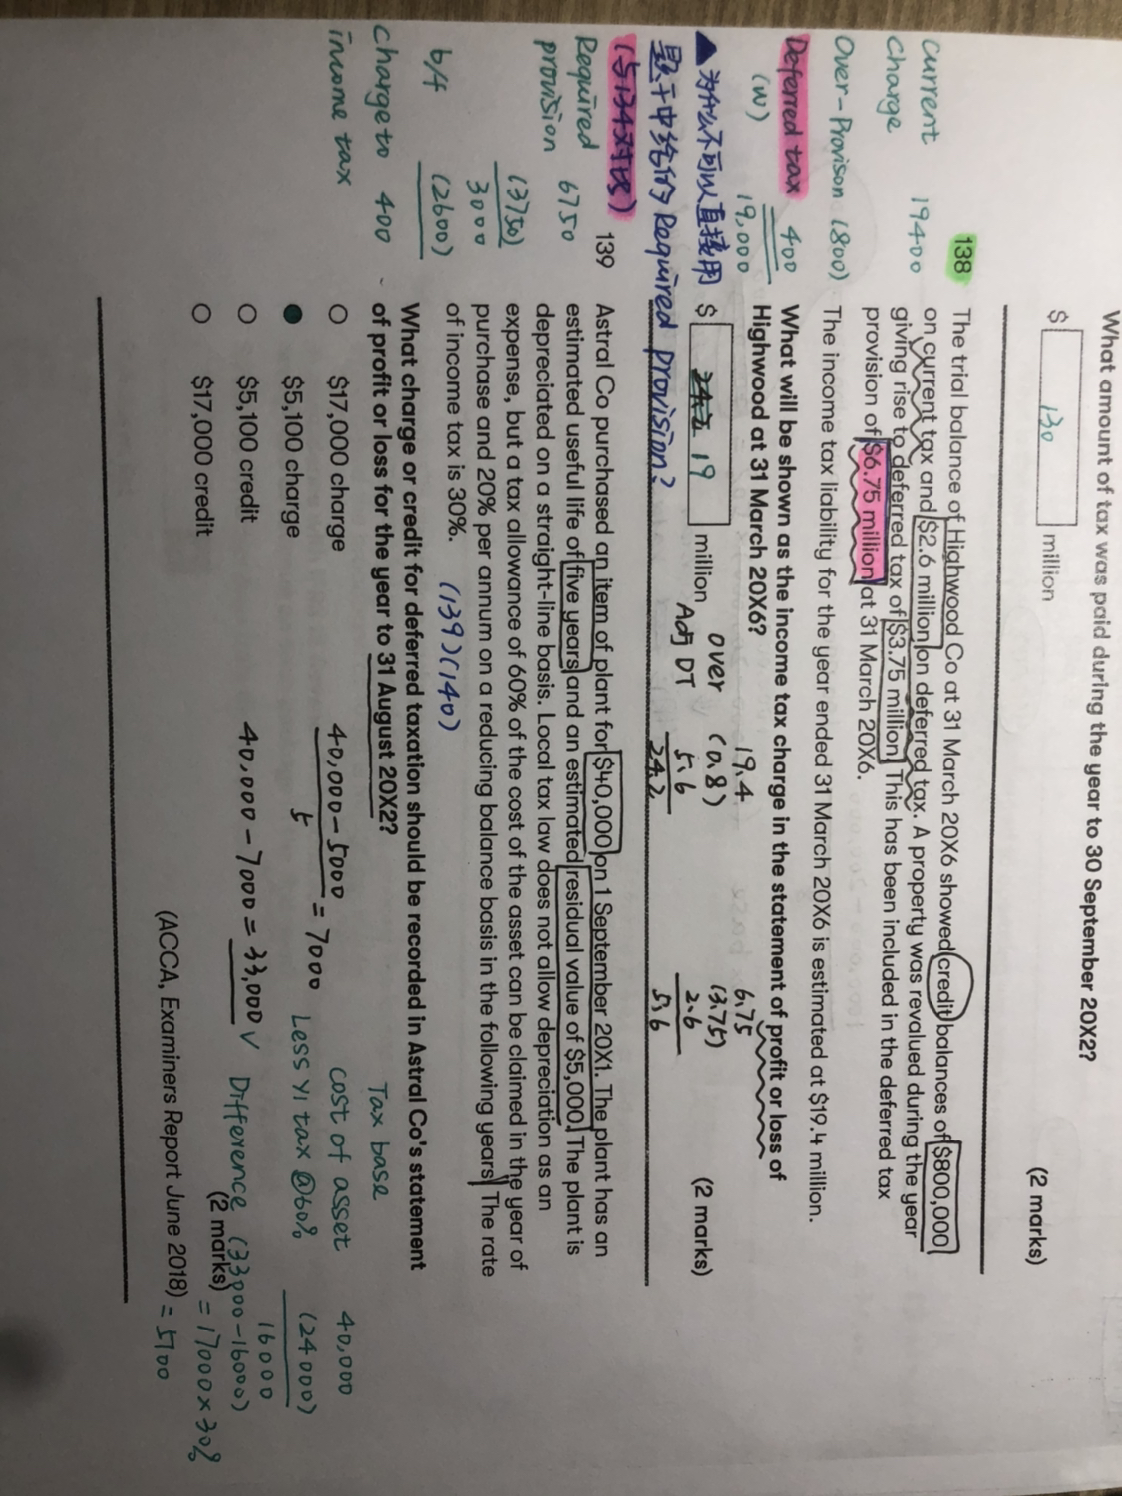 What amount of tax was paid during the year to 30 September 20X2?
$ 130 million
(2 marks)
138 The trial balance of Highwood Co at 31 March 20X6 showed credit balances of $800,000
on current tax and $2.6 million on deferred tax. A property was revalued during the year
giving rise to deferred tax of $3.75 million. This has been included in the deferred tax
provision of $6.75 million at 31 March 20X6.
The income tax liability for the year ended 31 March 20X6 is estimated at $19.4 million.
What will be shown as the income tax charge in the statement of profit or loss of
Highwood at 31 March 20X6?
$ 24.2 19 million
(2 marks)
current
charge 19400
Over-Provison (800)
Deferred tax 400
(W) 19,000
▲为什么不可以直接用
题干中给的 Required provision?
(与134对比)
Required
provision 6750
(3750)
3000
b/f (2600)
charge to 400
income tax
19.4
over (0.8)
Adj DT 5.6
24.2
6.75
(3.75)
2.6
5.6
139 Astral Co purchased an item of plant for $40,000 on 1 September 20X1. The plant has an
estimated useful life of five years and an estimated residual value of $5,000. The plant is
depreciated on a straight-line basis. Local tax law does not allow depreciation as an
expense, but a tax allowance of 60% of the cost of the asset can be claimed in the year of
purchase and 20% per annum on a reducing balance basis in the following years. The rate
of income tax is 30%.
(139)(140)
What charge or credit for deferred taxation should be recorded in Astral Co's statement
of profit or loss for the year to 31 August 20X2?
$17,000 charge
$5,100 charge
$5,100 credit
$17,000 credit
40,000-5000
5
= 7000
40,000-7000=33,000 √
Tax base
cost of asset 40,000
Less Y1 tax @60% (24000)
16000
Difference (33000-16000)
=17000×30%
=5100
(2 marks)
(ACCA, Examiners Report June 2018)